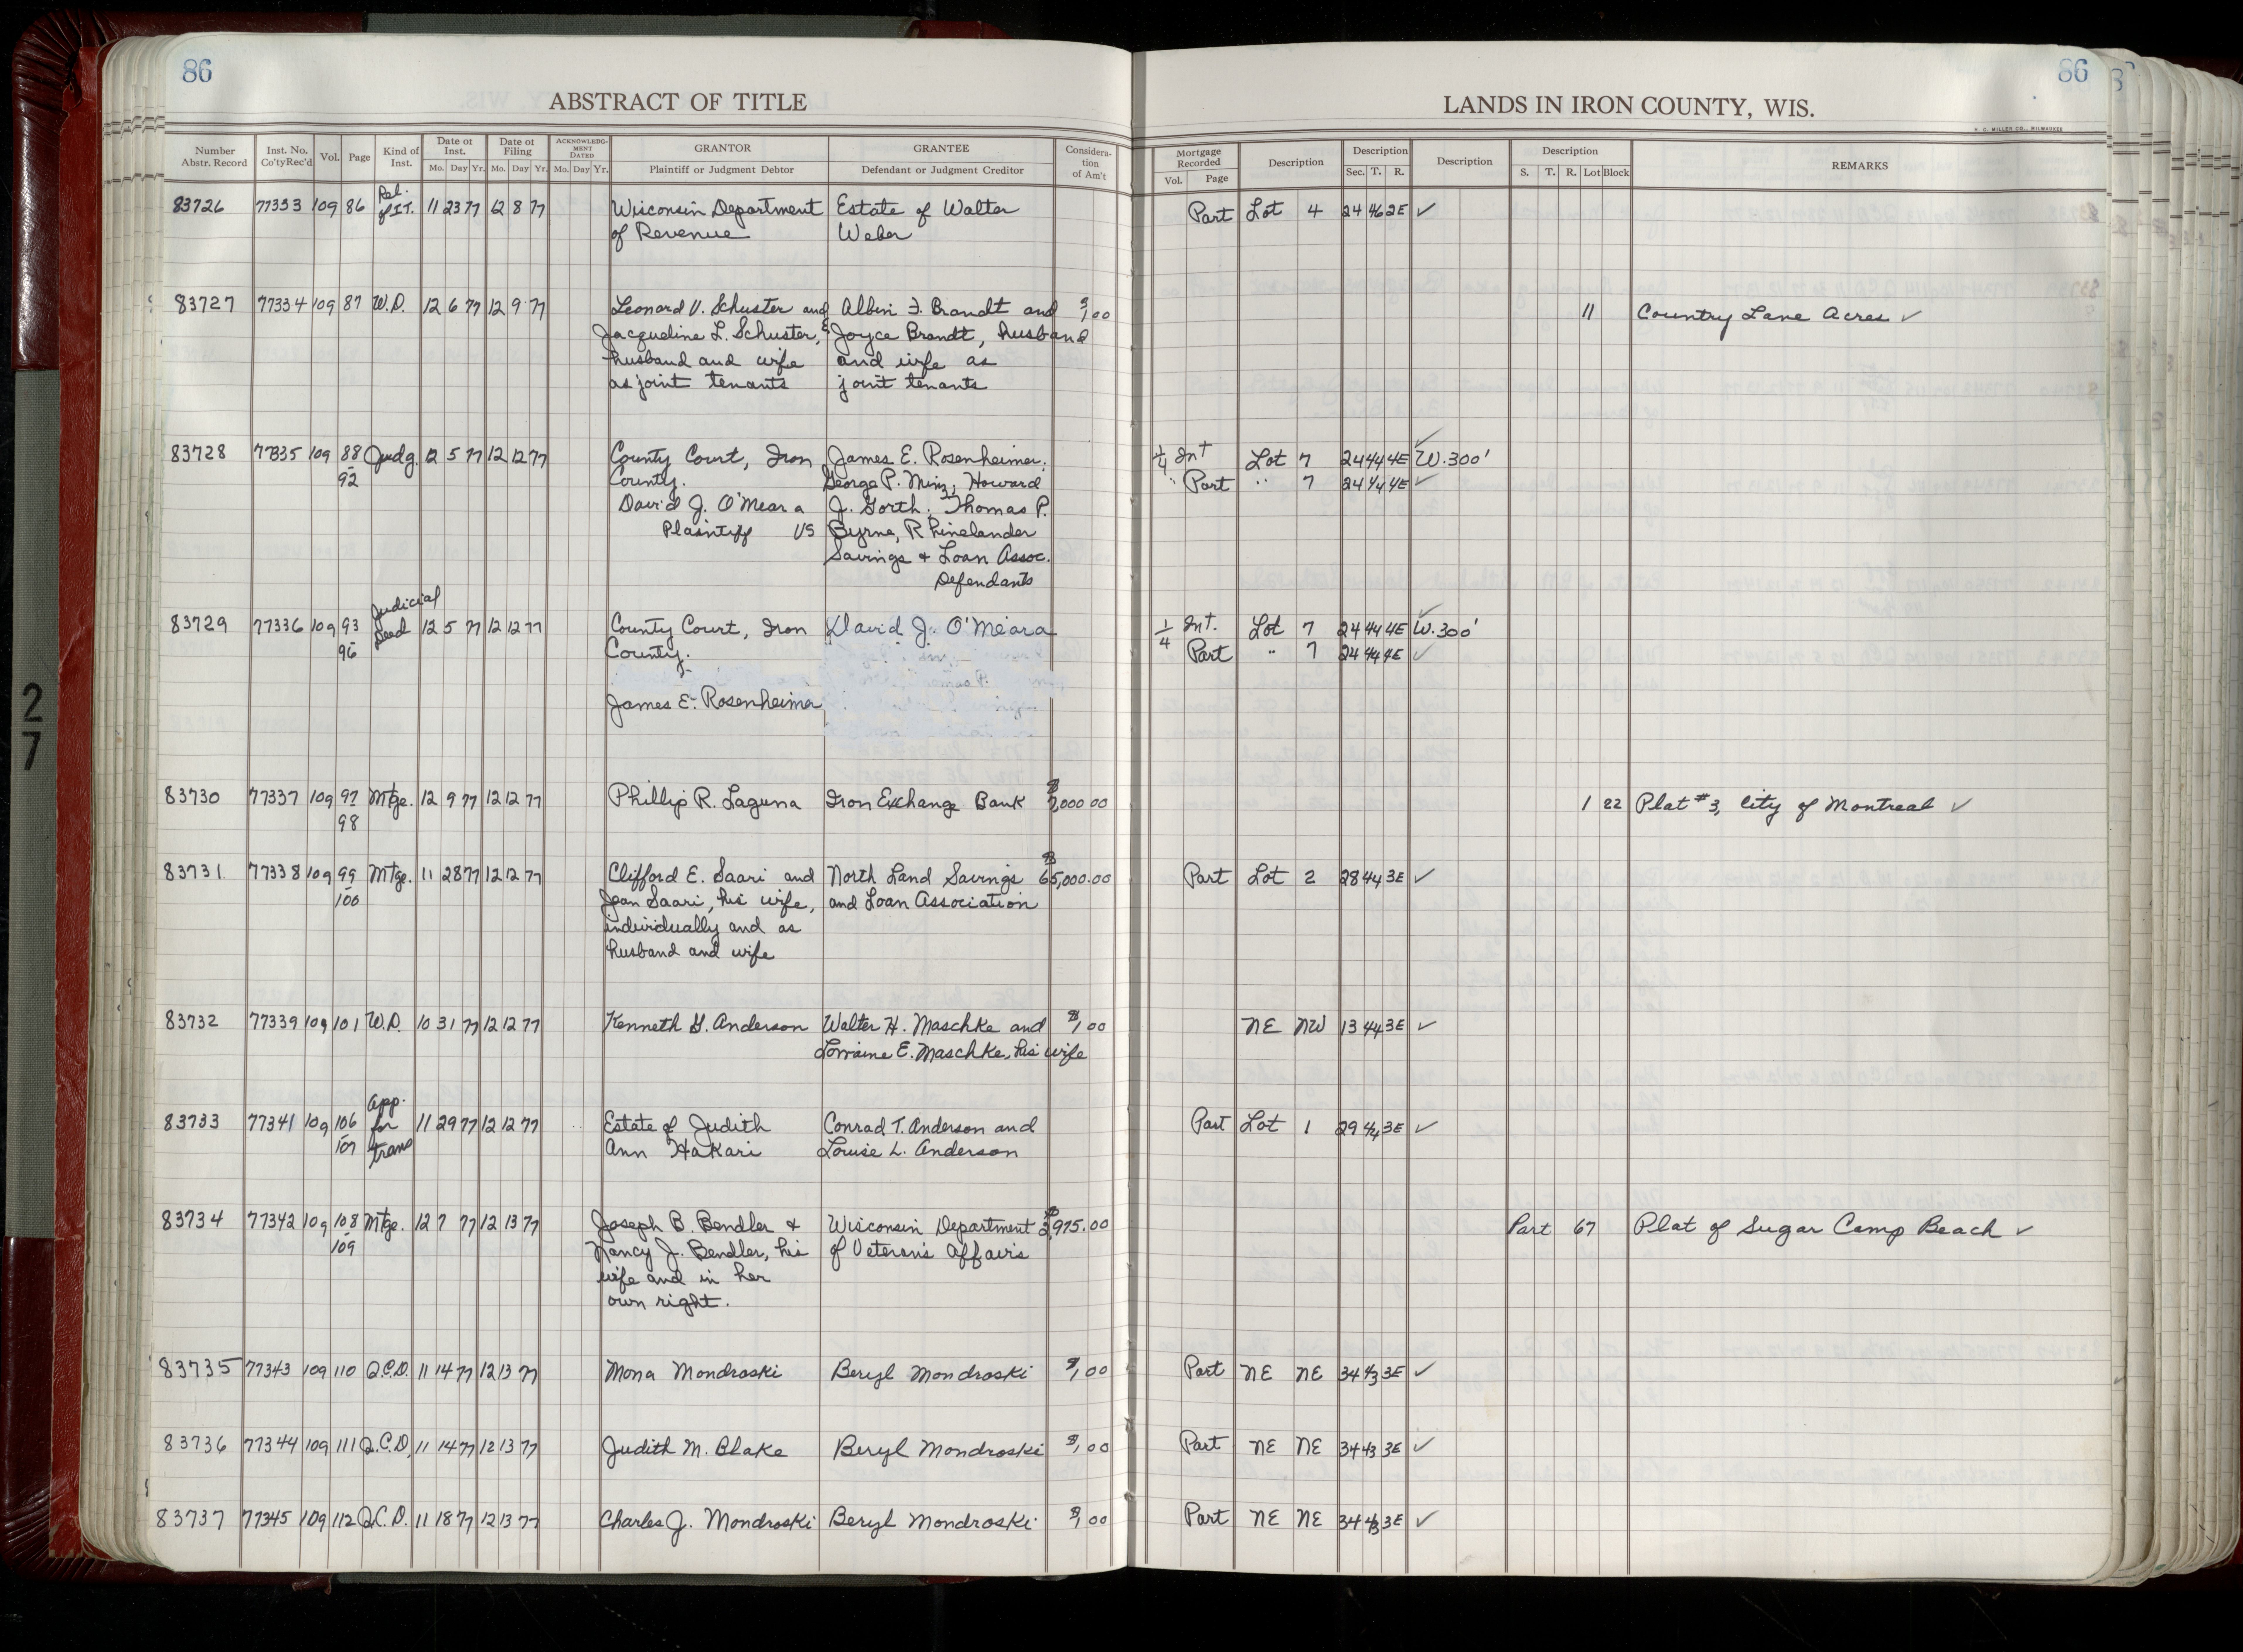 86
86
ABSTRACT OF TITLE
LANDS IN IRON COUNTY, WIS.
H. C. MILLER CO., MILWAUKEE
Number Abstr. Record Inst. No. Co'ty Rec'd Vol. Page Kind of Inst. Date of Inst. Mo. Day Yr. Date of Filing Mo. Day Yr. ACKNOWLEDGMENT DATED Mo. Day Yr. GRANTOR Plaintiff or Judgment Debtor GRANTEE Defendant or Judgment Creditor Consideration of Am't Mortgage Recorded Vol. Page Description Description Sec. T. R. Description Description S. T. R. Lot Block REMARKS
83726 77333 109 86 Rel. of I.T. 11 23 77 12 8 77 Wisconsin Department Estate of Walter Part Lot 4 24 46 2E ✓
of Revenue Weber
83727 77334 109 87 W.D. 12 6 77 12 9 77 Leonard V. Schuster and Albin F. Brandt and $1.00 11 Country Lane Acres ✓
Jacqueline L. Schuster, Joyce Brandt, husband
husband and wife and wife as
as joint tenants joint tenants
83728 77335 109 88 Judg. 12 5 77 12 12 77 County Court, Iron James E. Rosenheimer, 1/4 Int Lot 7 24 44 4E W. 300' ✓
- 92 County. George P. Howard " Part " 7 24 44 4E ✓
David J. O'Meara J. Gorth, Thomas P.
Plaintiff VS Byrne, Rhinelander
Savings + Loan Assoc.
Defendants
83729 77336 109 93 Judicial Deed 12 5 77 12 12 77 County Court, Iron David J. O'Meara 1/4 Int. Lot 7 24 44 4E W. 300' ✓
- 96 County. Part " 7 24 44 4E ✓
James E. Rosenheimer
83730 77337 109 97 Mtge. 12 9 77 12 12 77 Phillip R. Laguna Iron Exchange Bank ,000 00 1 22 Plat #3, City of Montreal ✓
98
83731 77338 109 99 Mtge. 11 28 77 12 12 77 Clifford E. Saari and North Land Savings $65,000.00 Part Lot 2 28 44 3E ✓
- 100 Jean Saari, his wife, and Loan Association
individually and as
husband and wife
83732 77339 109 101 W.D. 10 31 77 12 12 77 Kenneth G. Anderson Walter H. Maschke and $1.00 NE NW 13 44 3E ✓
Lorraine E. Maschke, his wife
83733 77341 109 106 App. for trans 11 29 77 12 12 77 Estate of Judith Conrad T. Anderson and Part Lot 1 29 44 3E ✓
- 107 Ann Hakari Louise L. Anderson
83734 77342 109 108 Mtge. 12 7 77 12 13 77 Joseph B. Bendler + Wisconsin Department $3,975.00 Part 67 Plat of Sugar Camp Beach ✓
- 109 Nancy J. Bendler, his of Veteran's Affairs
wife and in her
own right.
83735 77343 109 110 Q.C.D. 11 14 77 12 13 77 Mona Mondroski Beryl Mondroski $1.00 Part NE NE 34 43 3E ✓
83736 77344 109 111 Q.C.D. 11 14 77 12 13 77 Judith M. Blake Beryl Mondroski $1.00 Part NE NE 34 43 3E ✓
83737 77345 109 112 Q.C.D. 11 18 77 12 13 77 Charles J. Mondroski Beryl Mondroski $1.00 Part NE NE 34 43 3E ✓
27